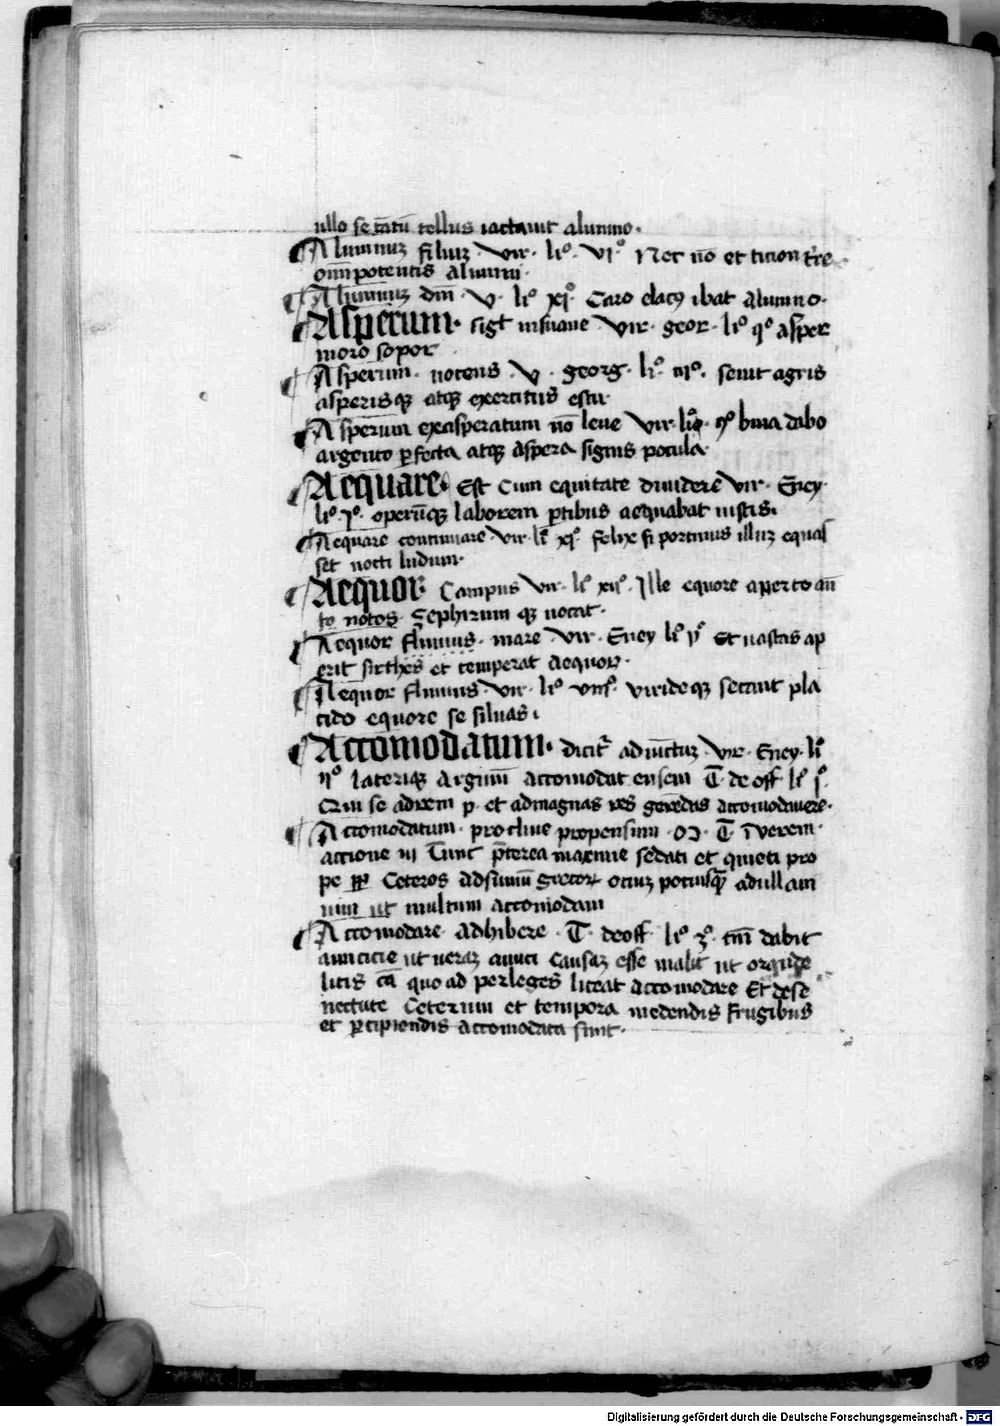 ullo se tātū tellus iactauit alumno.
Alumnuz filiuz vir. li°. vi° Nec nō et ticion t're
omīpotentis alumni.
Alumnuz dm̄. v. li° xj°. Caro elacꝫ ibat alumno.
Asperum. sigt insuaue vir. geor. li° q° asper
moro sopor
Asperum. nocens. v. georg. li°. iij°. seuit agris
asperisqꝫ atqꝫ exercitus estu.
Asperum exasperatum nō leue vir. bina dabo
argento ꝑfecta atqꝫ aspera signis pocula.
Aequare. Est Cum equitate diuidere vir. Eney.
li°. j°. operūqꝫ laborem ꝑtibus aequabat iustis.
Aequare continuare. vir. li° xj°. felix si portinus illuz equas
set nocti ludum.
Aequor Campus vir. li° xij°. Ille equore aperto an̄
to notos Sephirum qꝫ uocat.
Aequor fluuius. mare vir. Eney li° p° Et uastas ap
erit sirthes et temperat aequor.
Aequor fluuius. vir. li° viij°. virideqꝫ secant pla
cido equore se siluas.
Accomodatum. dicit' adiūctuz vir. Eney. li°
ij° lateriqꝫ Argiuū accomodat ensem T. de off li° j°.
Qui se ad rem p. et ad magnas res gerēdas accomodauere.
Accomodatum. procliue propensum. T. ī verem.
actione iij Tunc p̄terea maxime sedati et quieti pro
pe Ceteros ad sumū ociuz potiusqꝫ ad ullam
uim ut multum accomodam
Accomodare. Adhibere. T. de off li° 3°. tm̄ dabit
amicicie ut ueraz amici causaz esse malit ut
litis cā quo ad per leges liceat accomodare Et de se
nectute Ceterum et tempora medendis frugibus
et ꝑcipiendis accomodata sunt.
Digitalisierung gefördert durch die Deutsche Forschungsgemeinschaft - DFG